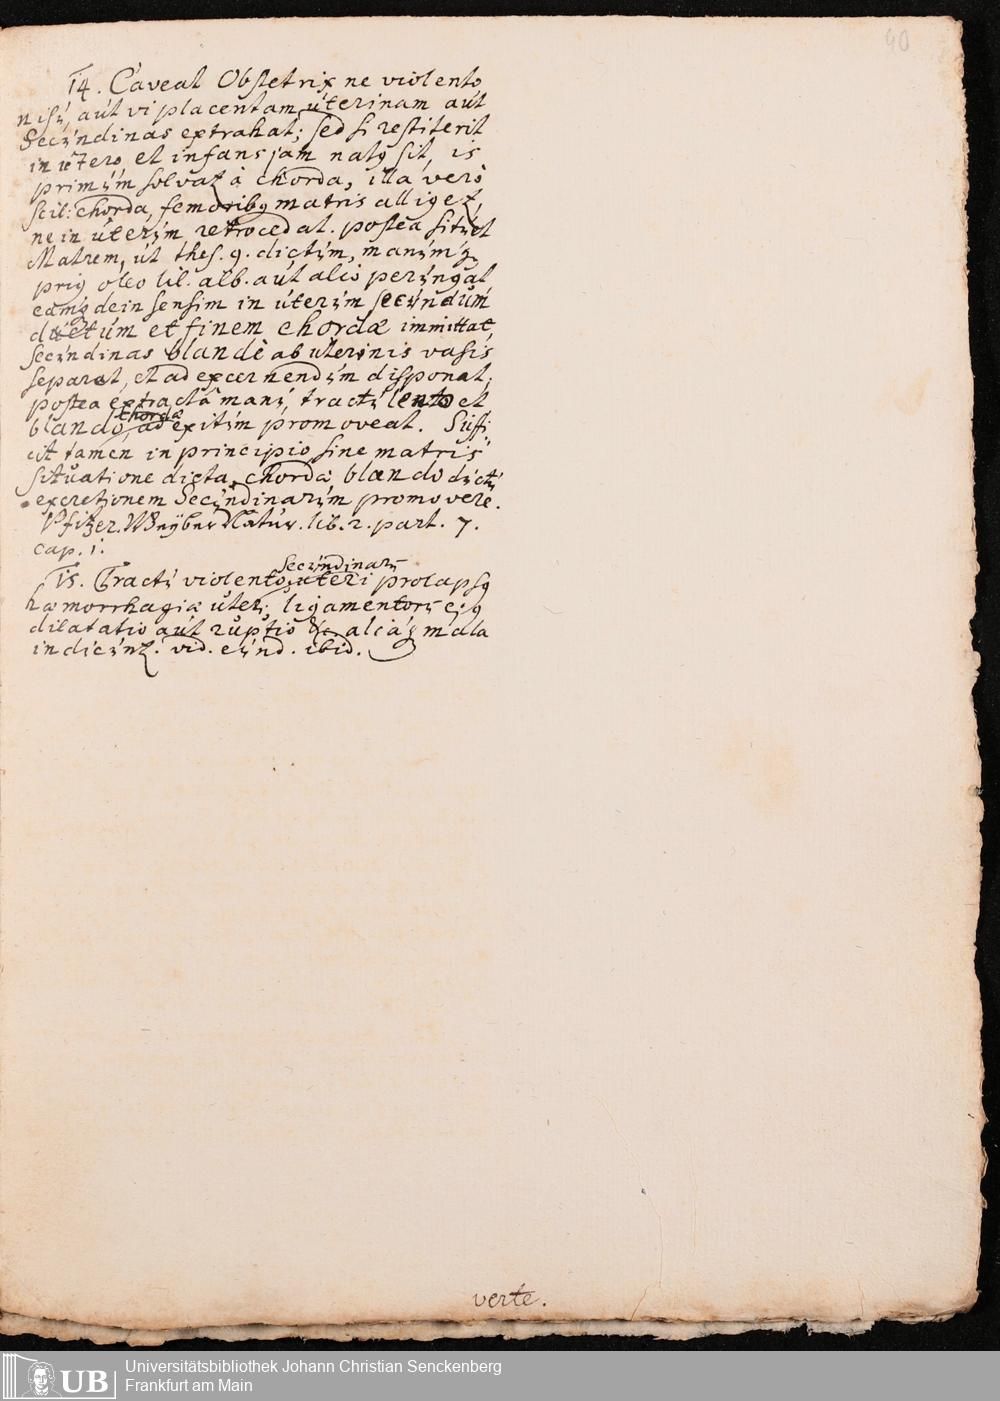 40
14. Caveat Obstetrix ne violento
nisu, aut vi placentam uterinam aut
Secundinas extrahat; sed si restiterit
in utero et infans jam natꝰ sit, is
primum solvat à chorda, illa verò
scil: chorda, femoribꝰ matris alliget,
ne in uterum retrocedat. postea situet
Matrem, ut thes. 9. dictum, manumqꝫ
priꝰ oleo lil. alb. aut alio perungat
eamqꝫ dein sensim in uterum secundum
ductum et finem chordæ immittat,
secundinas blandè ab uterinis vasis
separet, et ad excernendum disponat,
postea extractâ manu, tractu lento et
blando, chordæ ad exitum promoveat. Suffi
cit tamen in principio sine matris
situatione dicta, chorda blando ductu
excretionem Secundinarum promovere.
Pfitzer. Weyber Natur. lib. 2. part. 7.
cap. 1.
15. Tractu violento secundinarum uteri prolapsꝰ
hæmorrhagiæ uteri, ligamentorum ejꝰ
dilatatio aut ruptio &c aliaqꝫ mala
inducunt. vid. eund. ibid.
verte.
UB
Universitätsbibliothek Johann Christian Senckenberg
Frankfurt am Main